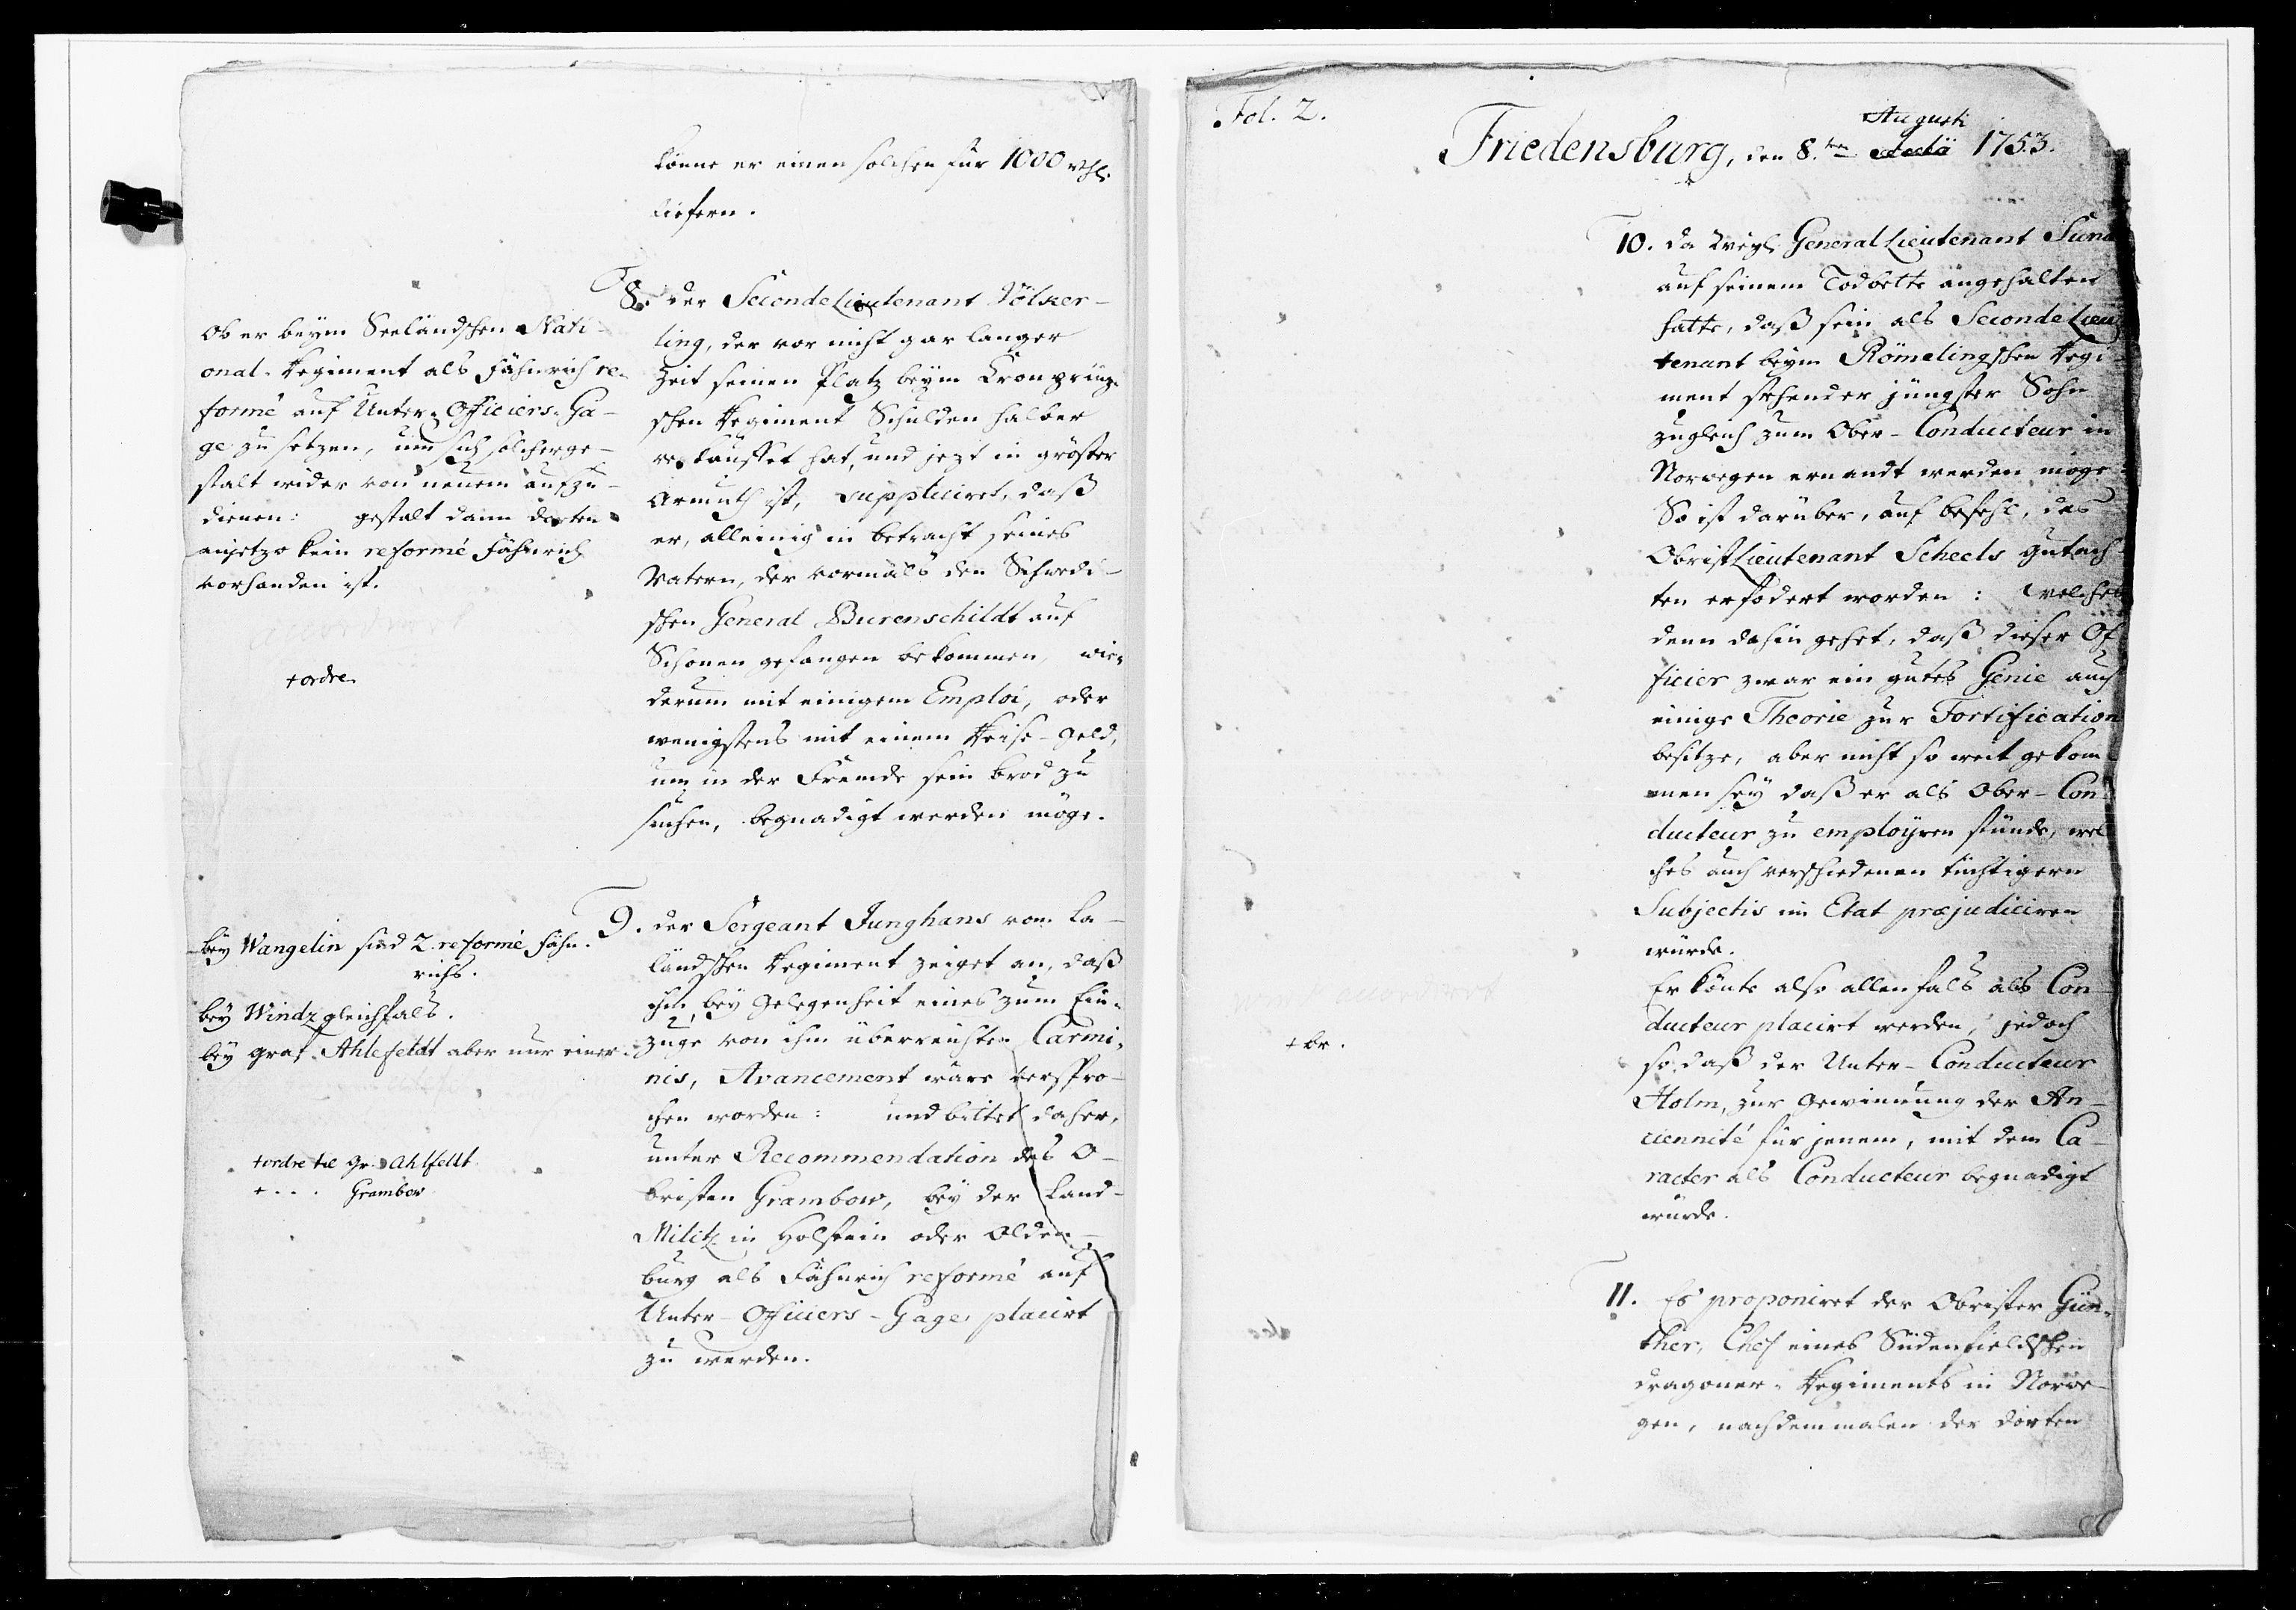 könne er einen solchen für 1000 rthl.
liefern.
8. der SecondeLieutenant Völker-
ling, der vor nicht gar langer
Zeit seinen Platz beÿm Cronprinz-
schen Regiment Schulden halber
verkauffet hat, und jezt in gröster
Armuth ist, suppliciret, daß
er, alleinig in betracht seines
Vatern, der vormals den Schwedi-
schen General Burenschildt auf
Schonen gefangen bekommen, wie-
derum mit einigem Emploi, oder
wenigstens mit einem Reise-Geld,
um in der Fremde sein brod zu
suchen, begnadigt werden möge.
Ob er beÿm Seeländschen Nati-
onal-Regiment als Fähnrich re-
formé auf Unter-Officiers-Ga-
ge zu setzen, um sich solcherge-
stalt wider von neuem aufzu-
dienen: gestalt dann dorten
anjetzo kein reformé Fähnrich
vorhanden ist.
accordiret
+ ordre
9. der Sergeant Junghans vom La-
ländschen Regiment zeiget an, daß
ihm beÿ Gelegenheit eines zum Ein-
zuge von ihm überreichten Carmi-
nis, Avancement wäre verspro-
chen worden: und bittet daher,
unter Recommendation des O-
bristen Grambow, beÿ der Land-
Militz in Holstein oder Olden-
burg als Fähnrich reformé auf
Unter-Officiers-Gage, placirt
zu werden.
beÿ Wangelin sind 2 reformé Fähn-
richs.
beÿ Windz gleichfals.
beÿ Graf Ahlefeldt aber nur einer
+ ordre til Gr. Ahlfeldt
+ . . . Grambow
Fol. 2.
Augusti
Friedensburg, den 8.ten 1753.
10. da weÿl. General Lieutenant Sun
auf seinem Todbette angehalten
hatte, daß sein als SecondeLieu
tenant beÿm Römelingschen Regi-
ment stehender jüngster Sohn
zugleich zum Ober-Conducteur in
Norwegen ernandt werden möge
So ist darüber, auf befehl, das
ObristLieutenant Scheels Gutach-
ten erfodert worden: welches
denn dahin gehet, daß dieser Of
ficier zwar ein gutes Genie auch
einige Theorie zur Fortification
besitze, aber nicht so weit gekom
men seÿ daß er als Ober-Con
ducteur zu employren stünde, wel
ches auch verschiedenen tüchtigern
Subjectis im Etat præjudiciren
würde.
Er könte also allenfals als Con
ducteur placirt werden, jedoch
so, daß der Unter-Conducteur
Holm, zur Gewinnung der An-
ciennité für jenem, mit dem Ca-
racter als Conducteur begnadigt
würde.
accordiret
+ br.
11. Es proponiret der Obrister Gün-
ther, Chef eines Südenfieldschen
Dragoner-Regiments in Norwe-
gen, nachdemmalen der dorten